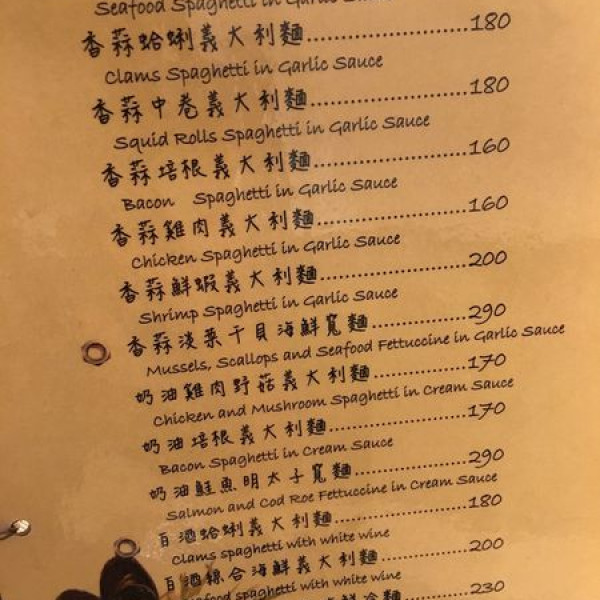 Seafood Spaghetti in Garlic
香蒜蛤蜊義大利麵..................180
Clams Spaghetti in Garlic Sauce
香蒜中卷義大利麵..................180
Squid Rolls Spaghetti in Garlic Sauce
香蒜培根義大利麵..................160
Bacon Spaghetti in Garlic Sauce
香蒜雞肉義大利麵..................160
Chicken Spaghetti in Garlic Sauce
香蒜鮮蝦義大利麵..................200
Shrimp Spaghetti in Garlic Sauce
香蒜淡菜干貝海鮮寬麵...........290
Mussels, Scallops and Seafood Fettuccine in Garlic Sauce
奶油雞肉野菇義大利麵...........170
Chicken and Mushroom Spaghetti in Cream Sauce
奶油培根義大利麵..................170
Bacon Spaghetti in Cream Sauce
奶油鮭魚明太子寬麵..............290
Salmon and Cod Roe Fettuccine in Cream Sauce
白酒蛤蜊義大利麵..................180
Clams spaghetti with white wine
白酒綜合海鮮義大利麵...........200
seafood spaghetti with white wine
鮮冷麵...........230